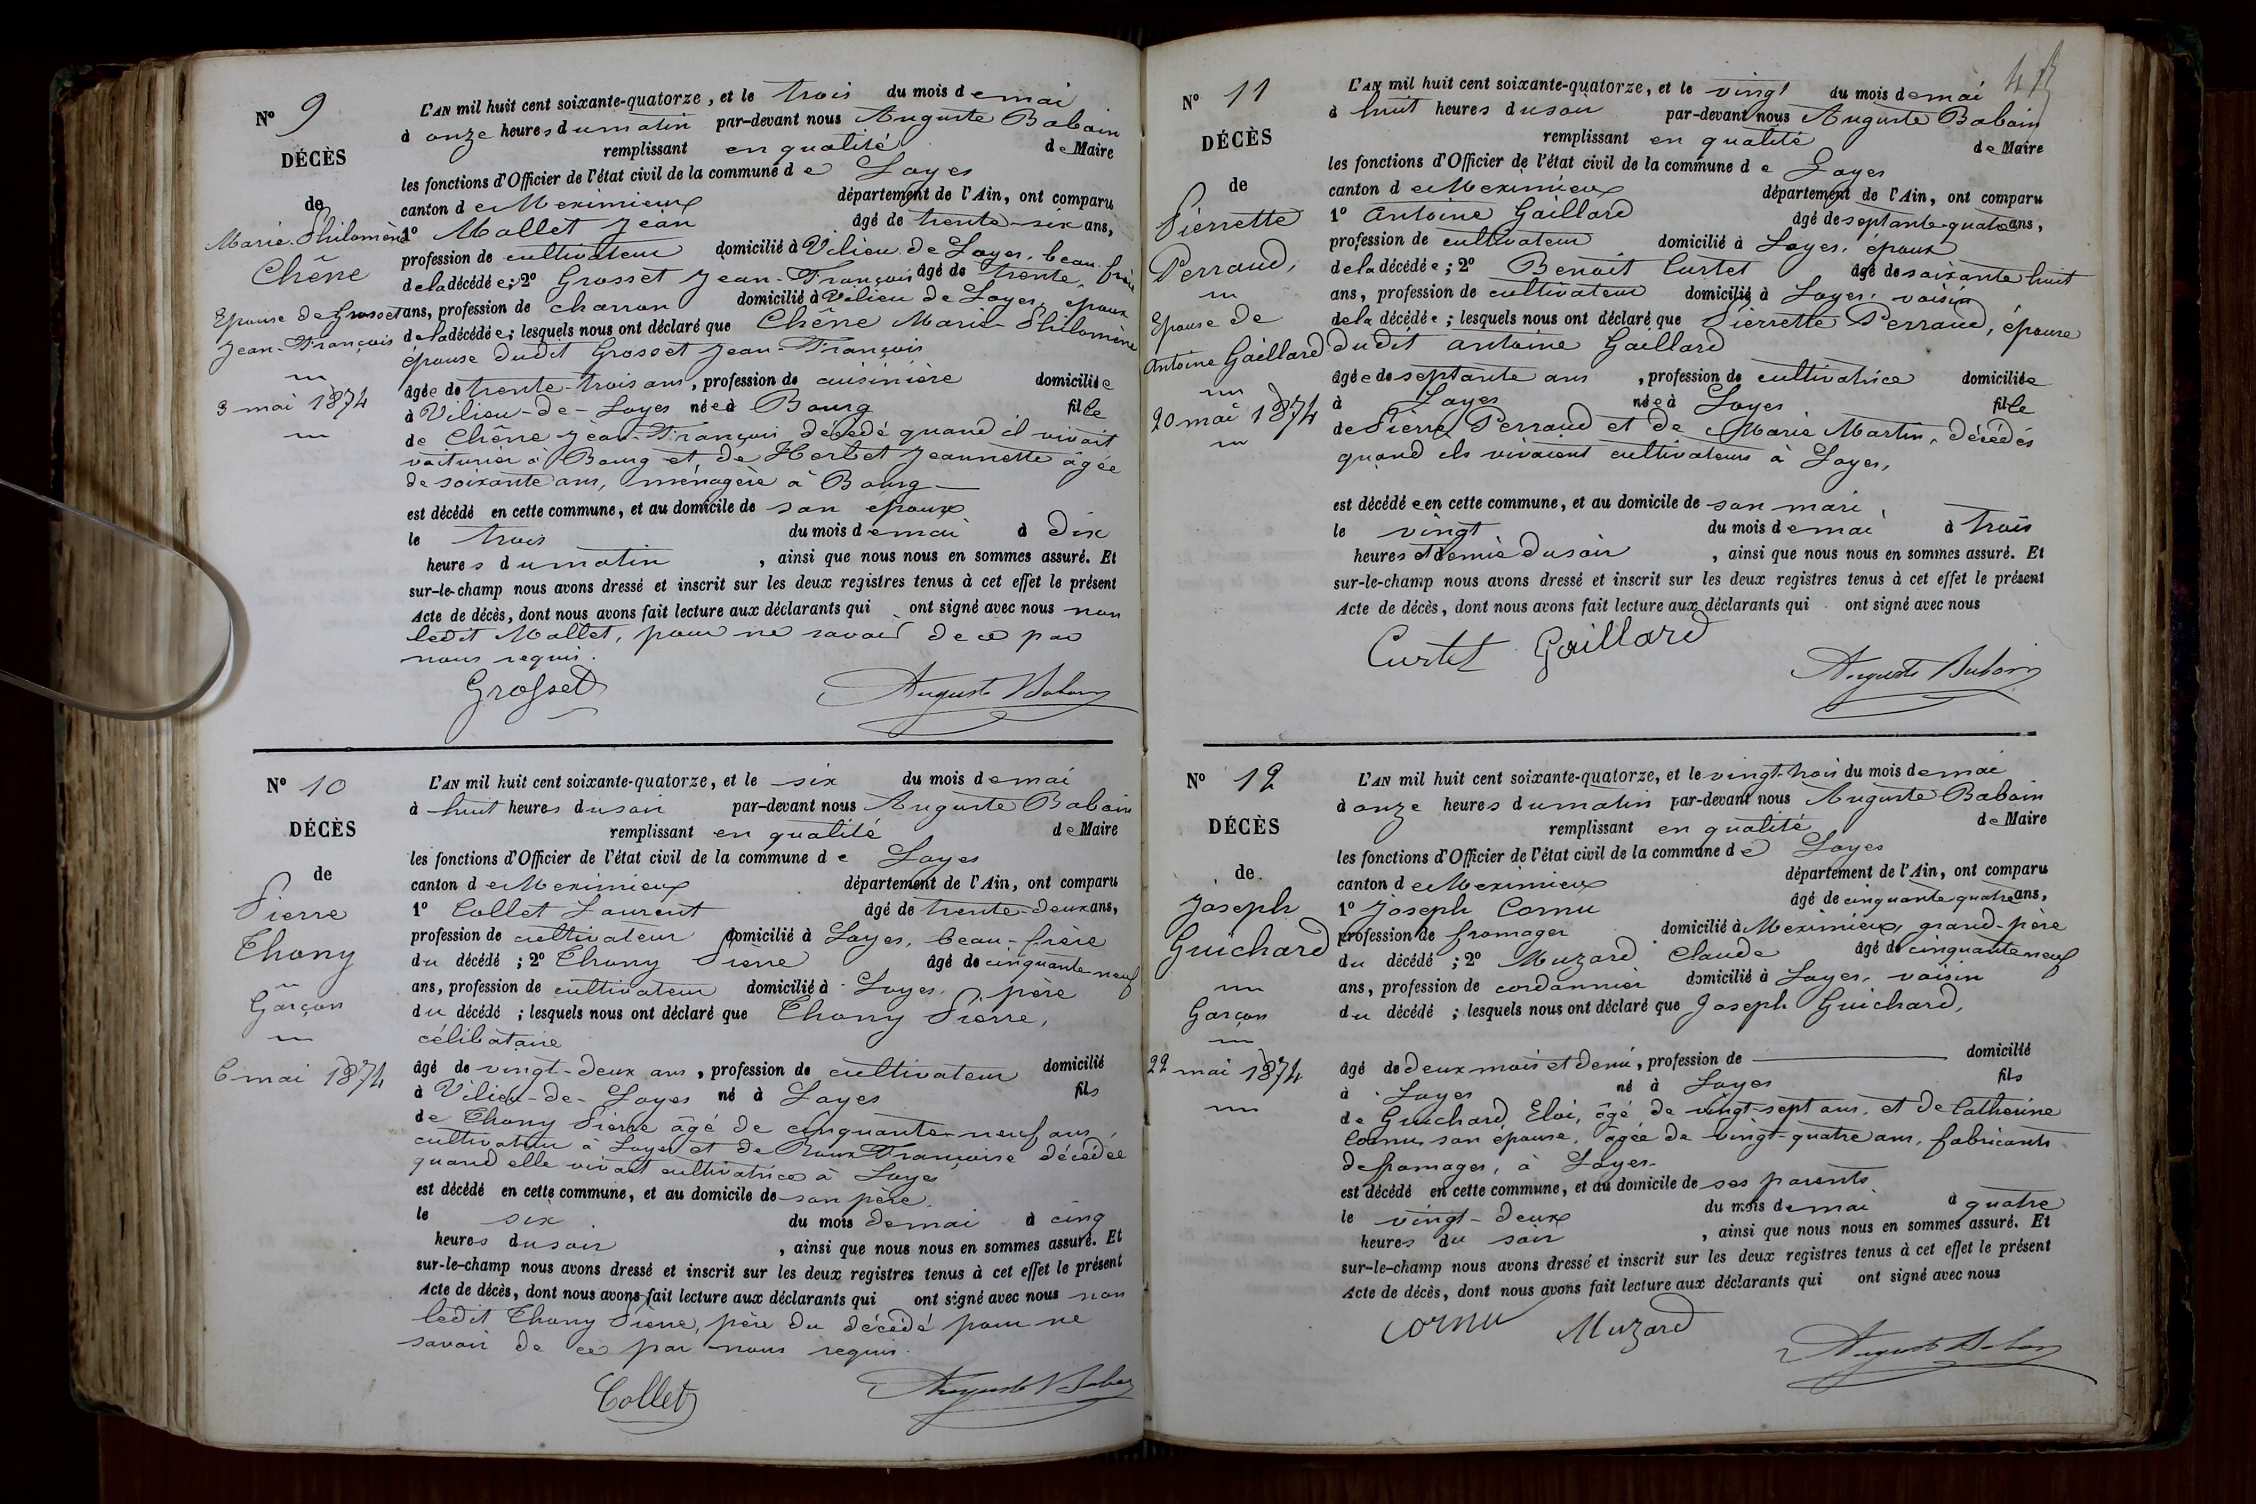 Nº 9
DÉCÈS
de
Marie-Philomène
Chêne
Epouse de Grosset
Jean-François
3 mai 1874
L'AN mil huit cent soixante-quatorze, et le trois du mois de mai
à onze heures du matin par-devant nous Auguste Baboin
remplissant en qualité de Maire
les fonctions d'Officier de l'état civil de la commune de Loyes
canton de Meximieux département de l'Ain, ont comparu
1º Mollet Jean âgé de trente-six ans,
profession de cultivateur domicilié à Vilieu-de-Loyes, beau-frère
de la décédée; 2º Grosset Jean-François âgé de trente
ans, profession de charron domicilié à Vilieu de Loyes, époux
de la décédée; lesquels nous ont déclaré que Chêne Marie-Philomène
épouse dudit Grosset Jean-François
âgée de trente-trois ans, profession de cuisinière domiciliée
à Vilieu-de-Loyes née à Bourg fille
de Chêne Jean-François décédé quand il vivait
voiturier à Bourg et de Herbet Jeannette âgée
de soixante ans, ménagère à Bourg
est décédé en cette commune, et au domicile de son époux
le trois du mois de mai à dix
heures du matin, ainsi que nous nous en sommes assuré. Et
sur-le-champ nous avons dressé et inscrit sur les deux registres tenus à cet effet le présent
Acte de décès, dont nous avons fait lecture aux déclarants qui ont signé avec nous non
ledit Mollet, pour ne savoir de ce par
nous requis.
Grosset Auguste Baboin
Nº 10
DÉCÈS
de
Pierre
Thony
Garçon
6 mai 1874
L'AN mil huit cent soixante-quatorze, et le six du mois de mai
à huit heures du soir par-devant nous Auguste Baboin
remplissant en qualité de Maire
les fonctions d'Officier de l'état civil de la commune de Loyes
canton de Meximieux département de l'Ain, ont comparu
1º Collet Laurent âgé de trente-deux ans,
profession de cultivateur domicilié à Loyes, beau-frère
du décédé; 2º Thony Pierre âgé de cinquante-neuf
ans, profession de cultivateur domicilié à Loyes, père
du décédé; lesquels nous ont déclaré que Thony Pierre,
célibataire
âgé de vingt-deux ans, profession de cultivateur domicilié
à Vilieu-de-Loyes né à Loyes fils
de Thony Pierre âgé de cinquante-neuf ans,
cultivateur à Loyes et de Roux Françoise décédée
quand elle vivait cultivatrice à Loyes
est décédé en cette commune, et au domicile de son père.
le six du mois de mai à cinq
heures du soir, ainsi que nous nous en sommes assuré. Et
sur-le-champ nous avons dressé et inscrit sur les deux registres tenus à cet effet le présent
Acte de décès, dont nous avons fait lecture aux déclarants qui ont signé avec nous non
ledit Thony Pierre, père du décédé pour ne
savoir de ce par nous requis.
Collet Auguste Baboin
Nº 11
DÉCÈS
de
Pierrette
Perraud,
Epouse de
Antoine Gaillard
20 mai 1874
L'AN mil huit cent soixante-quatorze, et le vingt du mois de mai
à huit heures du soir par-devant nous Auguste Baboin
remplissant en qualité de Maire
les fonctions d'Officier de l'état civil de la commune de Loyes
canton de Meximieux département de l'Ain, ont comparu
1º Antoine Gaillard âgé de septante-quatre ans,
profession de cultivateur domicilié à Loyes, époux
de la décédée; 2º Benoit Curtet âgé de soixante huit
ans, profession de cultivateur domicilié à Loyes, voisin
de la décédée; lesquels nous ont déclaré que Pierrette Perraud, épouse
dudit Antoine Gaillard
âgée de septante ans, profession de cultivatrice domiciliée
à Loyes née à Loyes fille
de Pierre Perraud et de Marie Martin, décédés
quand ils vivaient cultivateurs à Loyes,
est décédée en cette commune, et au domicile de son mari,
le vingt du mois de mai à trois
heures et demie du soir, ainsi que nous nous en sommes assuré. Et
sur-le-champ nous avons dressé et inscrit sur les deux registres tenus à cet effet le présent
Acte de décès, dont nous avons fait lecture aux déclarants qui ont signé avec nous
Curtet Gaillard
Auguste Baboin
Nº 12
DÉCÈS
de
Joseph
Guichard
Garçon
22 mai 1874
L'AN mil huit cent soixante-quatorze, et le vingt-trois du mois de mai
à onze heures du matin par-devant nous Auguste Baboin
remplissant en qualité de Maire
les fonctions d'Officier de l'état civil de la commune de Loyes
canton de Meximieux département de l'Ain, ont comparu
1º Joseph Cornu âgé de cinquante quatre ans,
profession de fromager domicilié à Meximieux, grand-père
du décédé; 2º Muzard Claude âgé de cinquante neuf
ans, profession de cordonnier domicilié à Loyes, voisin
du décédé; lesquels nous ont déclaré que Joseph Guichard,
âgé de deux mois et demi, profession de domicilié
à Loyes né à Loyes fils
de Guichard Eloi, âgé de vingt-sept ans, et de Catherine
Cornu, son épouse, âgée de vingt-quatre ans, fabricants
de fromages, à Loyes.
est décédé en cette commune, et au domicile de ses parents
le vingt-deux du mois de mai à quatre
heures du soir, ainsi que nous nous en sommes assuré. Et
sur-le-champ nous avons dressé et inscrit sur les deux registres tenus à cet effet le présent
Acte de décès, dont nous avons fait lecture aux déclarants qui ont signé avec nous
Cornu Muzard
Auguste Baboin